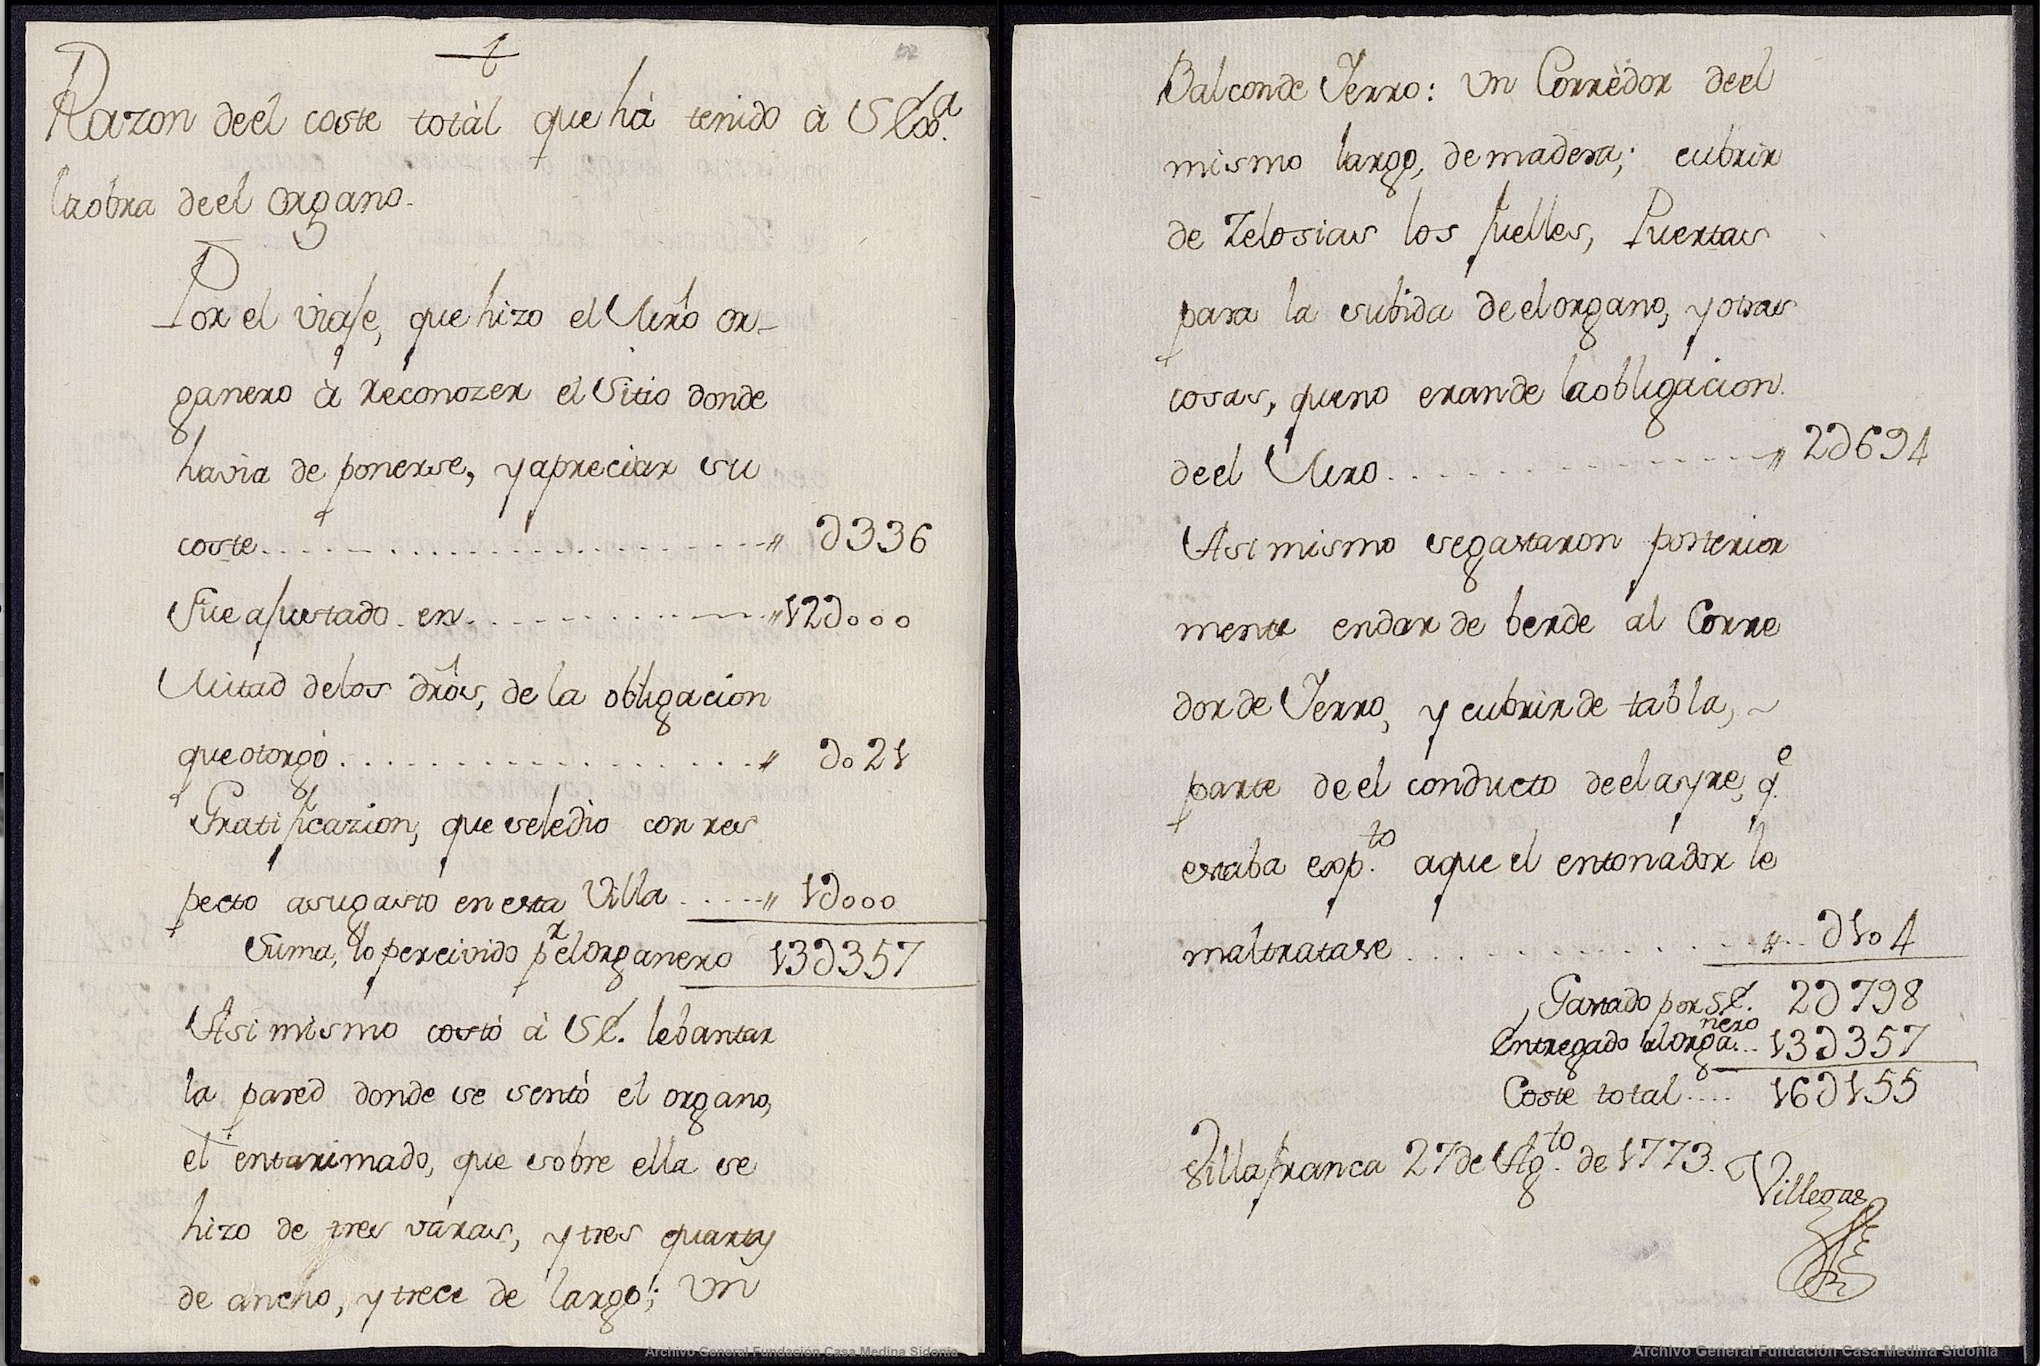 Razon de el coste totàl que hà tenido à S Exa.
la obra de el organo.
Por el viaje, que hizo el Mro or-
ganero à reconozer el sitio donde
havia de ponerse, y apreciar su
coste........................" ∂336
Fue ajustado en............" 12∂000
Mitad de los dros, de la obligacion
que otorgó....................." ∂021
Gratificazion, que se le dio con res
pecto a su gasto en esta Villa ....." 1∂000
Suma, lo percivido pr. el organero 13∂357
Asi mismo costó à SE. lebantar
la pared donde se sentó el organo,
el entarimado, que sobre ella se
hizo de tres varas, y tres quartas
de ancho, y trece de largo; un
Balcon de Yerro: un Corrèdor de el
mismo largo, de madera; cubrir
de Zelosias los fuelles, Puertas
para la subida de el organo, y otras
cosas, que no eran de la obligacion
de el Mro................" 2∂694
Asi mismo se gastaron posterior
mente en dar de berde al Corre
dor de Yerro, y cubrir de tabla, ~
parte de el conducto de el ayre, qe.
estaba expto. a que el entonador le
maltratase................".. ∂104
Gastado por SE. 2∂798
Entregado al Organero... 13∂357
Coste total.... 16∂155
Villafranca 27 de Agto. de 1773. Villegas
Archivo General Fundación Casa Medina Sidonia
Archivo General Fundación Casa Medina Sidonia